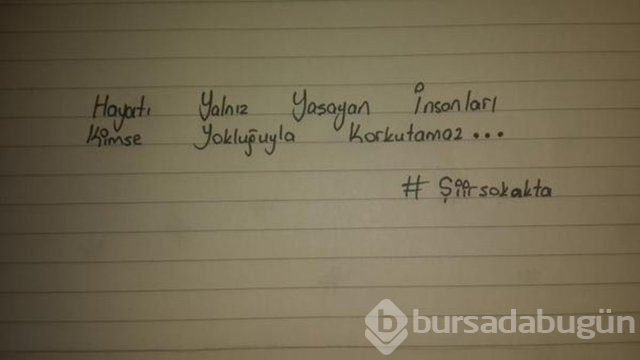 Hayatı Yalnız Yaşayan İnsanları
Kimse Yokluğuyla Korkutamaz...
# Şiirsokakta
b bursadabugün